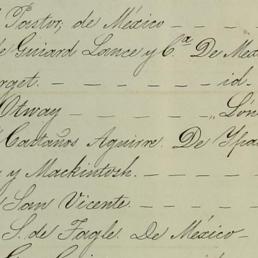 Pastor, de México
de Guizard Lance y Cª. De Mex
rget. id.
Otway „ Lón
Castaños Aguirre. De Ypa
y Mackintosh.
San Vicente.
S. de Fagle De México